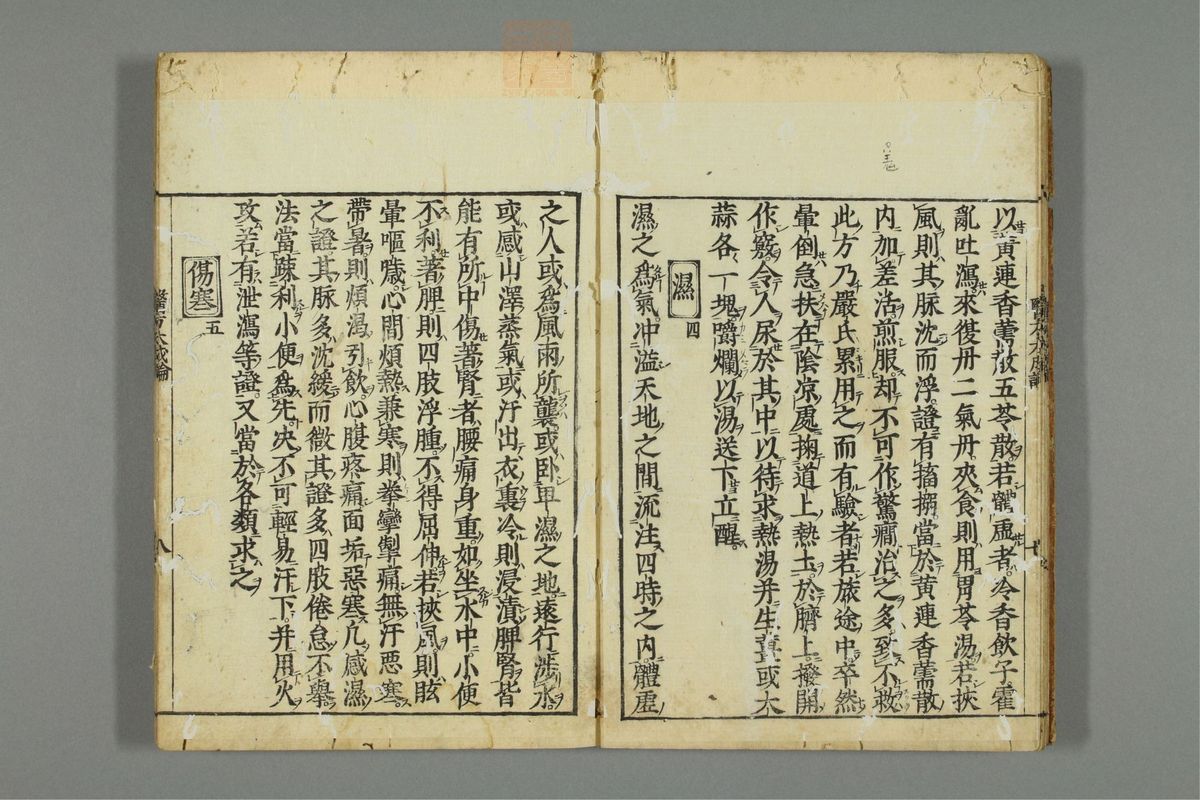 以黃連香薷散五苓散若體虛者冷香飲子霍
亂吐瀉來復丹二氣丹夾食則用胃苓湯若挾
風則其脉沈而浮證有搐搦當於黃連香薷散
内加羌活煎服却不可作驚癎治之多致不救
此方乃嚴氏累用之而有驗者若旅途中卒然
暈倒急扶在陰凉處掬道上熱土於臍上撥開
作竅令人尿於其中以待求熱湯并生薑或大
蒜各一塊嚼爛以湯送下立醒
濕 四
濕之爲氣冲溢天地之間流注四時之内體虛
之人或爲風雨所襲或卧卑濕之地遠行涉水
或感山澤蒸氣或汗出衣裏冷則浸漬脾腎皆
能有所中傷著腎者腰痛身重如坐水中小便
不利著脾則四肢浮腫不得屈伸若挾風則眩
暈嘔噦心間煩熱兼寒則拳攣掣痛無汗惡寒
帶暑則煩渴引飲心腹疼痛面垢惡寒凡感濕
之證其脉多沈緩而微其證多四肢倦怠不舉
法當疎利小便爲先決不可輕易汗下并用火
攻若有泄瀉等證又當於各類求之
傷寒 五
八